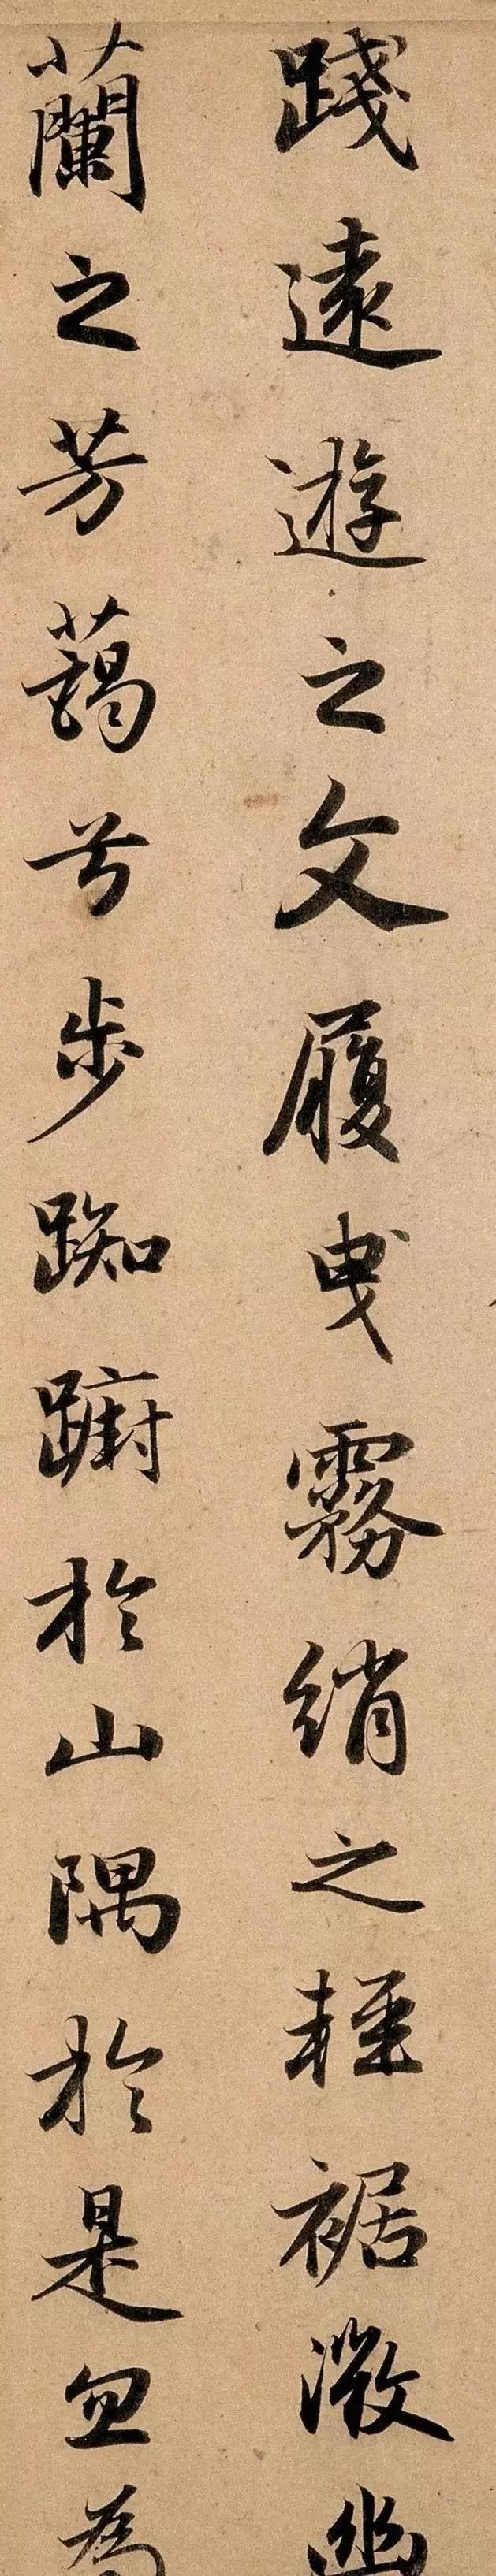 踐遠遊之文履曳霧綃之輕裾微幽
蘭之芳藹兮步踟躕於山隅於是忽焉